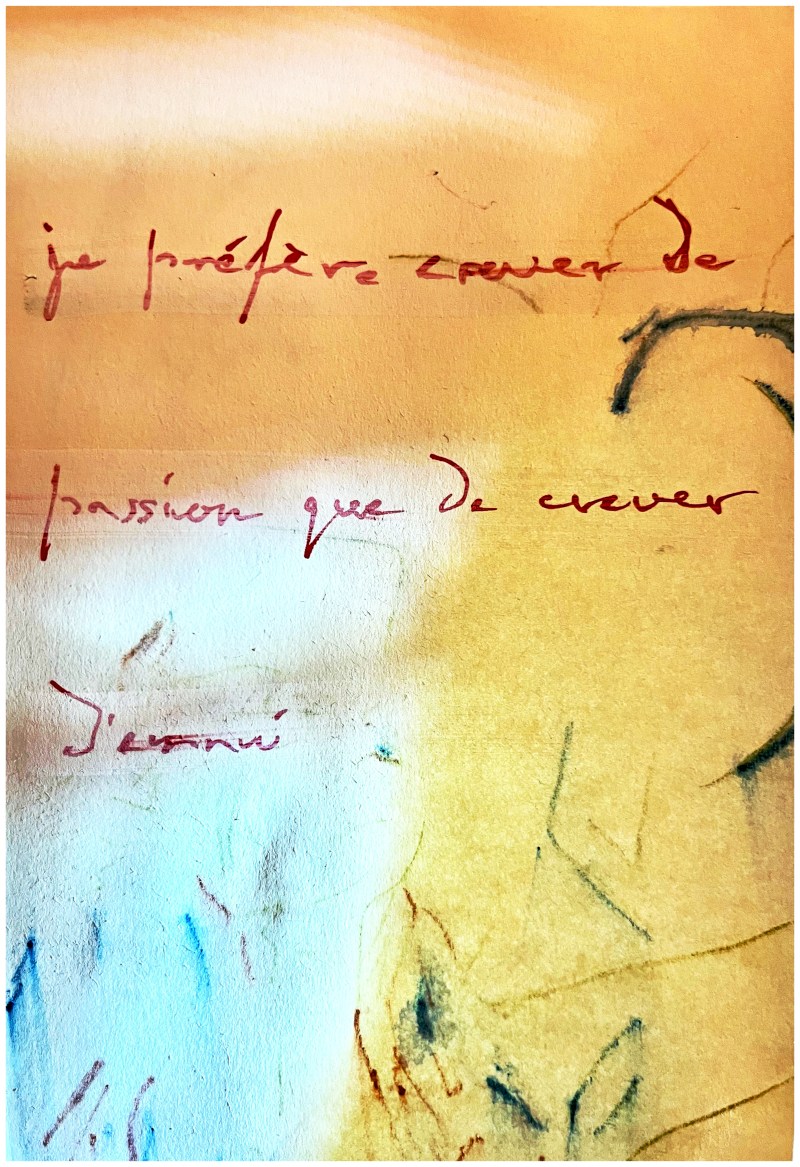 je préfère crever de
passion que de crever
d'ennui